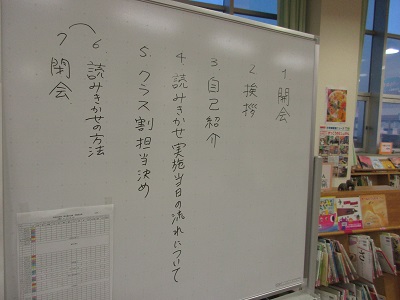 1. 開会
2. 挨拶
3. 自己紹介
4. 読みきかせ実施当日の流れについて
5. クラス割担当決め
6. 読みきかせの方法
7. 閉会